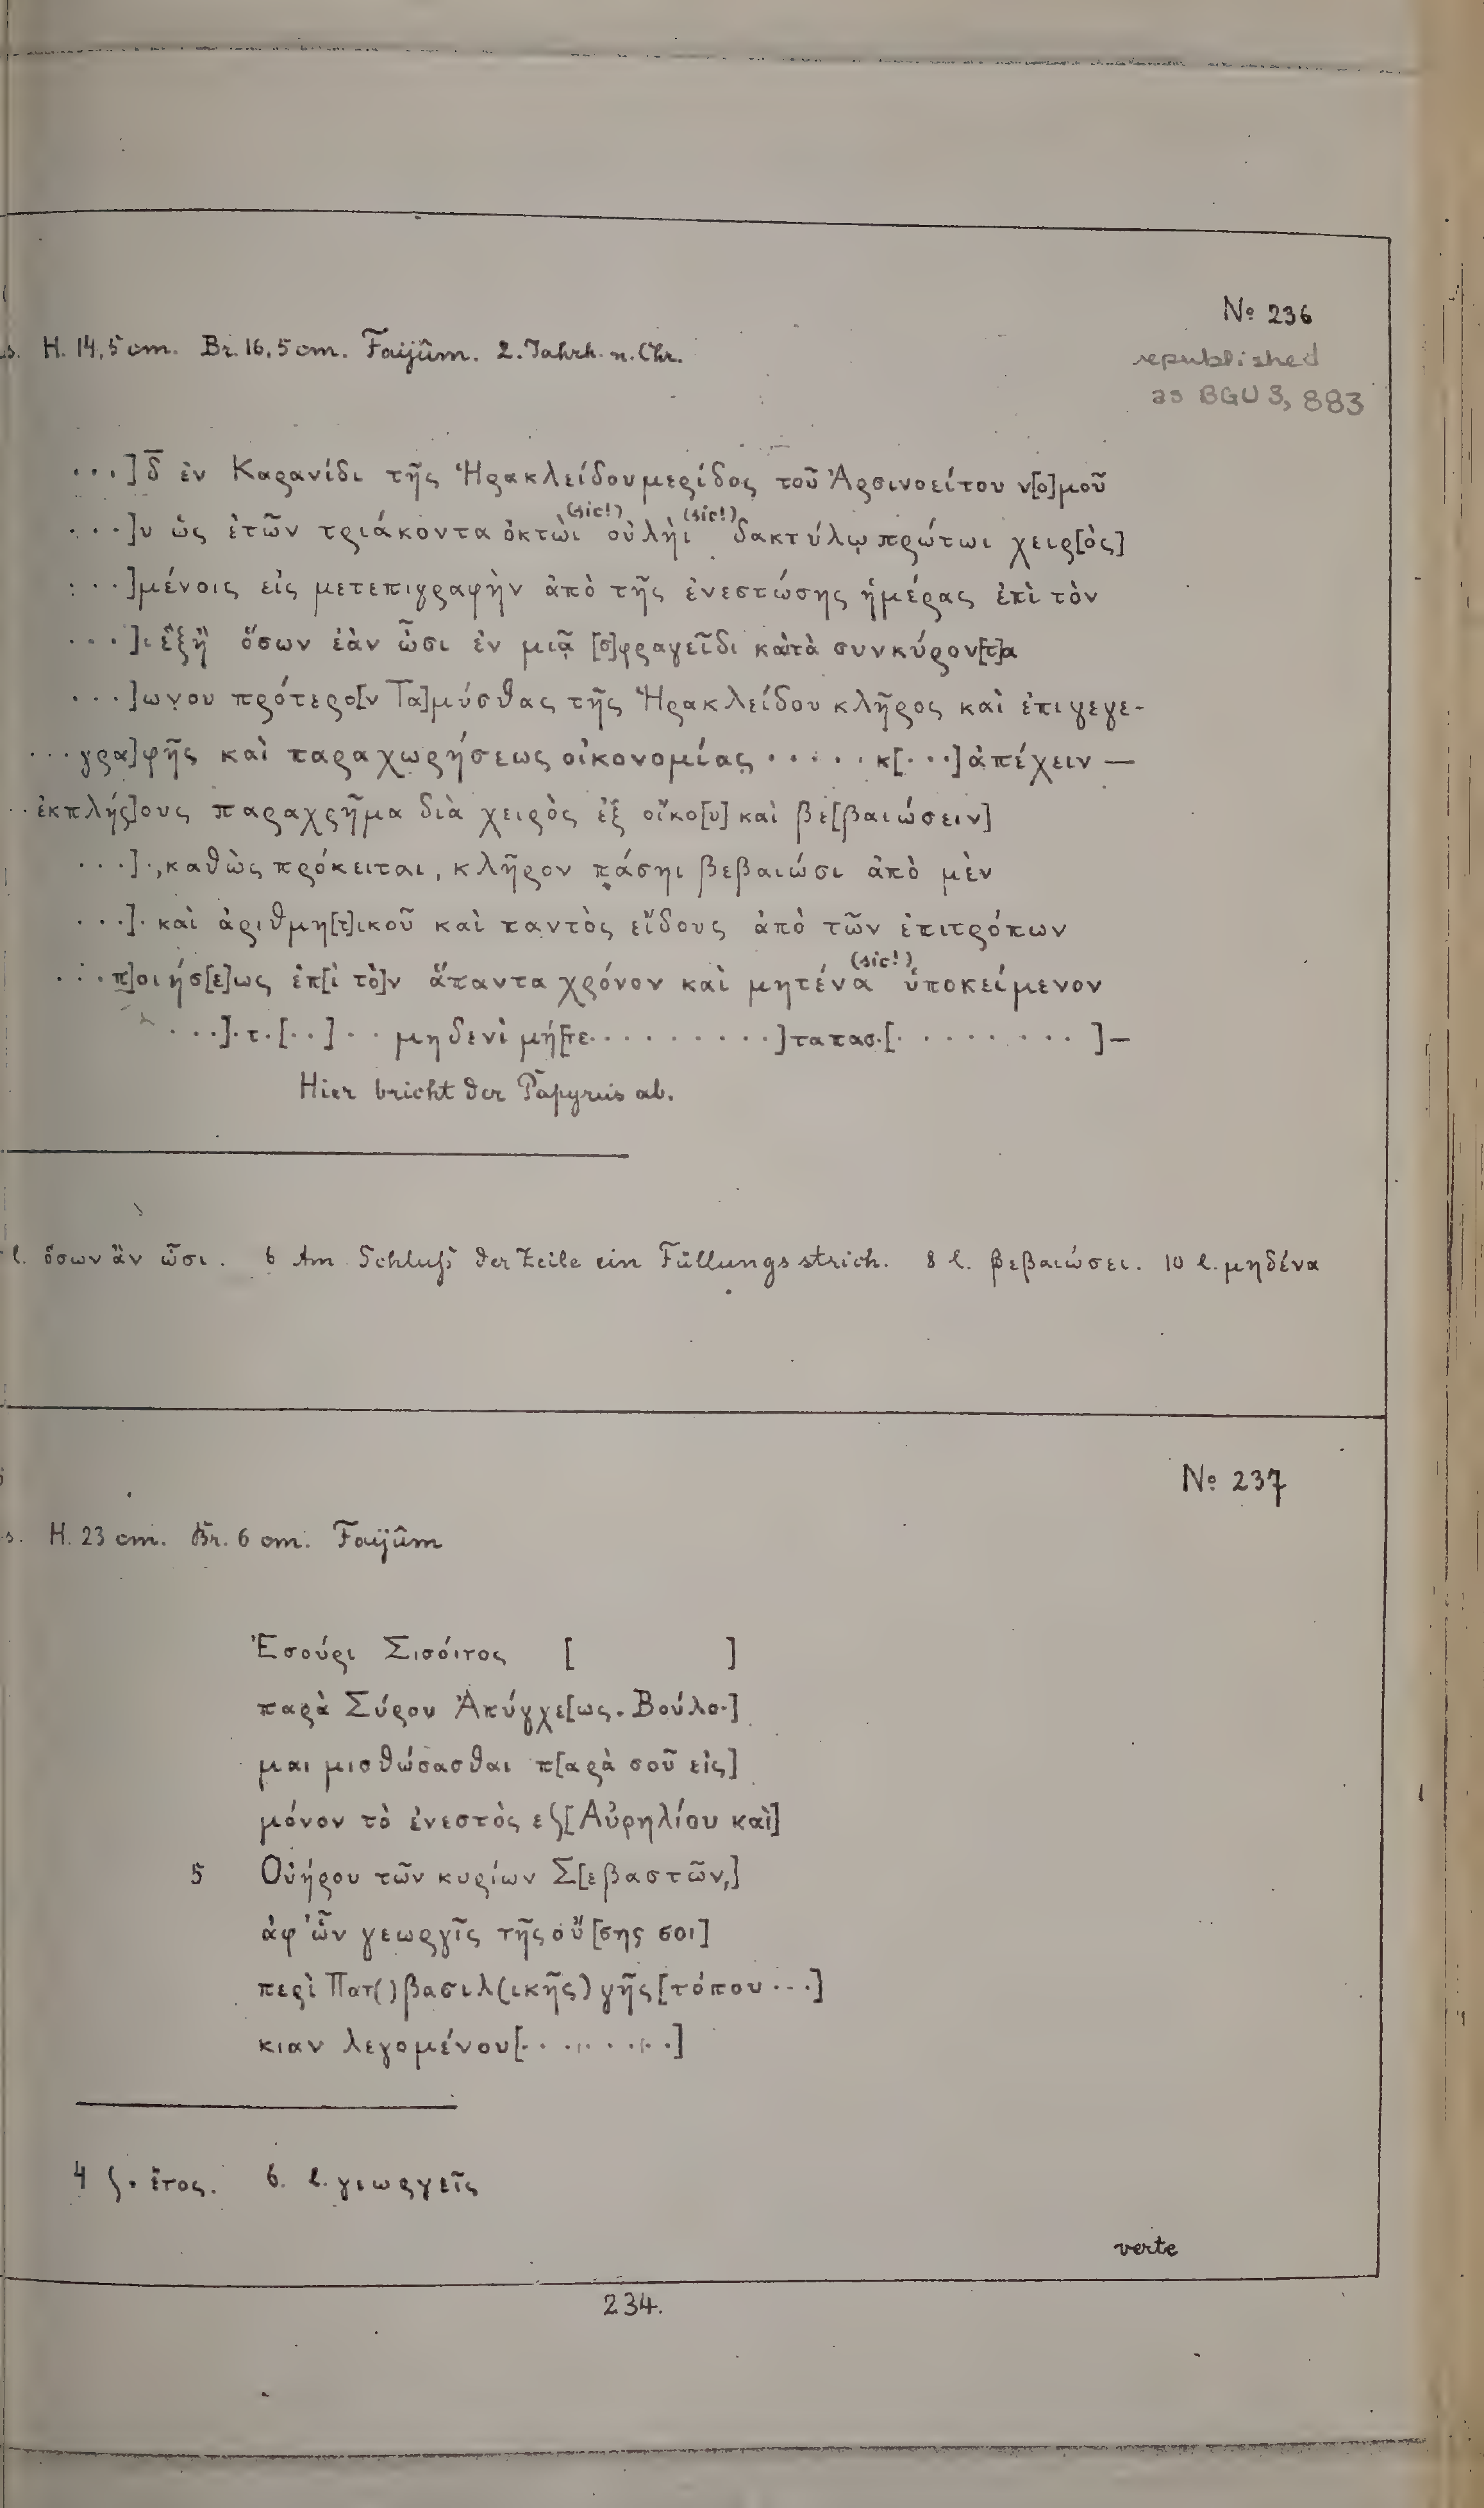 № 236
republished
as BGU 3, 883
s. H. 14,5 cm. Br. 16,5 cm. Faijûm. 2. Jahrh. n. Chr.
· · ·] δ̅ ἐν Καρανίδι τῆς Ἡρακλείδου μερίδος τοῦ Ἀρσινοείτου ν[ο]μοῦ
· · ·]υ ὡς ἐτῶν τριάκοντα ὀκτὼι (sic!) οὐλὴι (sic!) δακτύλῳ πρώτωι χειρ[ὸς]
· · ·]μένοις εἰς μετεπιγραφὴν ἀπὸ τῆς ἐνεστώσης ἡμέρας ἐπὶ τὸν
· · ·]· ἓξ ἢ ὅσων ἐὰν ὦσι ἐν μιᾷ [σ]φραγεῖδι κατὰ συνκύρον[τ]α
· · ·]ωνου πρότερο[ν Τα]μύσθας τῆς Ἡρακλείδου κλῆρος καὶ ἐπιγεγε-
· · · γρα]φῆς καὶ παραχωρήσεως οἰκονομίας · · · · · κ[· · ·] ἀπέχειν —
· · ἐκπλήσ]ους παραχρῆμα διὰ χειρὸς ἐξ οἴκο[υ] καὶ βε[βαιώσειν]
· · ·]·, καθὼς πρόκειται, κλῆρον πάσηι βεβαιώσι ἀπὸ μὲν
· · ·]· καὶ ἀριθμη[τ]ικοῦ καὶ παντὸς εἴδους ἀπὸ τῶν ἐπιτρόπων
· · · π]οιήσ[ε]ως ἐπ[ὶ τὸ]ν ἅπαντα χρόνον καὶ μητένα (sic!) ὑποκείμενον
· · ·]· τ · [· ·] · · μηδενὶ μή[τε · · · · · · · · ·]τατασ·[· · · · · · · · ·]—
Hier bricht der Papyrus ab.
l. ὅσων ἂν ὦσι. 6 Am Schluß der Zeile ein Füllungsstrich. 8 l. βεβαιώσει. 10 l. μηδένα
№ 237
s. H. 23 cm. Br. 6 cm. Faijûm
Ἐσούρι Σισόιτος [ ]
παρὰ Σύρου Ἀπύγχε[ως. Βούλο-]
μαι μισθώσασθαι π[αρὰ σοῦ εἰς]
μόνον τὸ ἐνεστὸς ε ϛ [Αὐρηλίου καὶ]
5 Οὐήρου τῶν κυρίων Σ[εβαστῶν,]
ἀφ' ὧν γεωργῖς τῆς οὔ[σης σοι]
περὶ Πατ( ) βασιλ(ικῆς) γῆς [τόπου · · ·]
κιαν λεγομένου [· · · · · · · ·]
4 ϛ · ἔτος. 6. l. γεωργεῖς
verte
234.